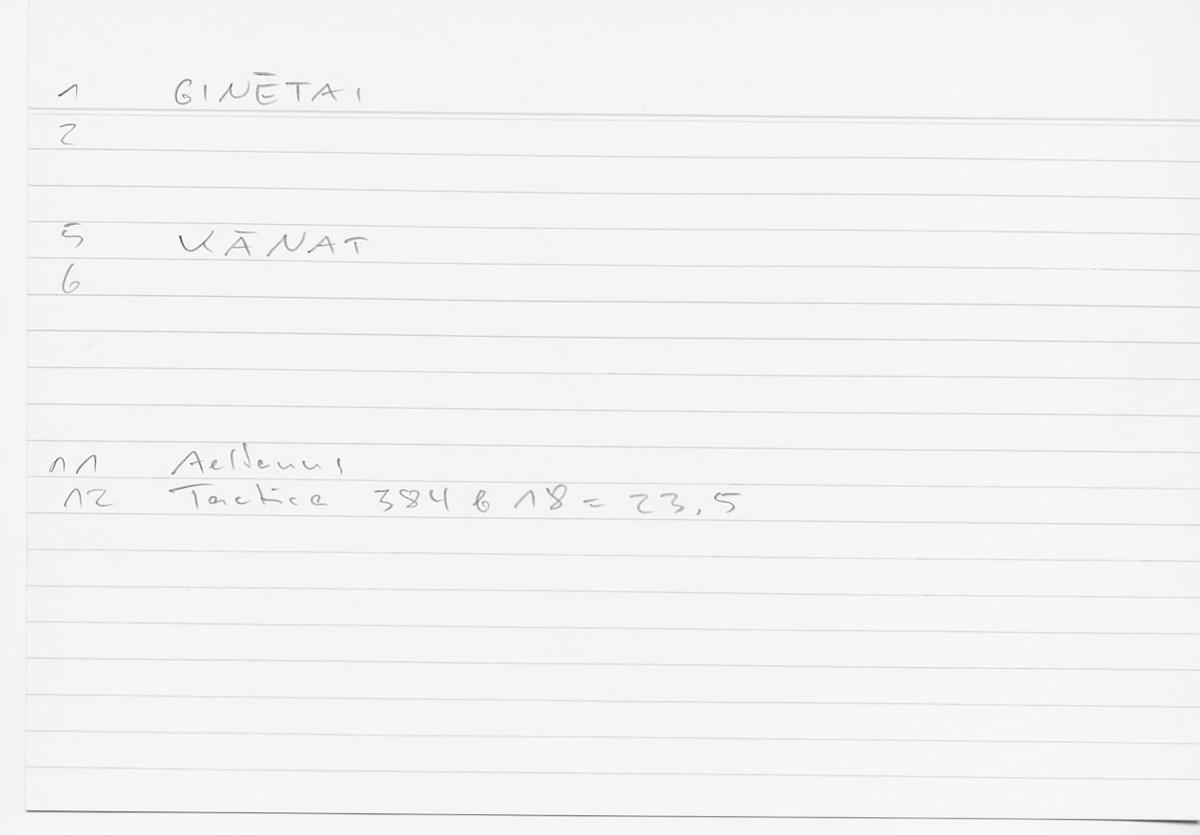 1 GINĒTAI
2
5 KĀNAT
6
11 Aelianus
12 Tactica 384 b 18 = 23,5